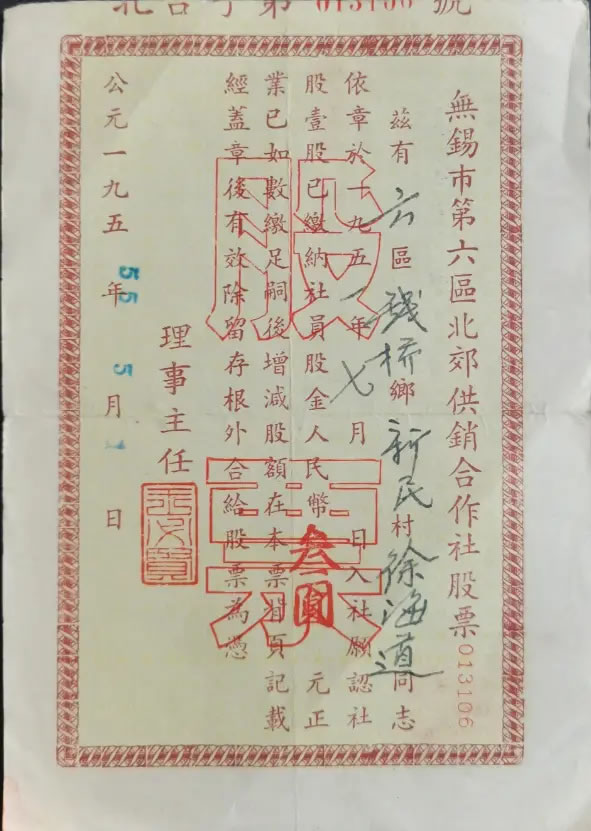 北合字第 013106 號
無錫市第六區北郊供銷合作社股票 013106
茲有六區殘橋鄉新民村徐海道同志
依章於一九五一年七月 日入社願認社
股壹股已繳納社員股金人民幣叁圓元正
業已如數繳足嗣後增減股額在本票背頁記載
經蓋章後有效除留存根外合給股票為憑
理事主任
公元一九五 55 年 5 月 1 日
股票